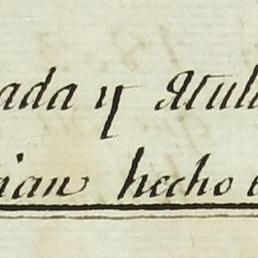 ada y Atul
ian hecho